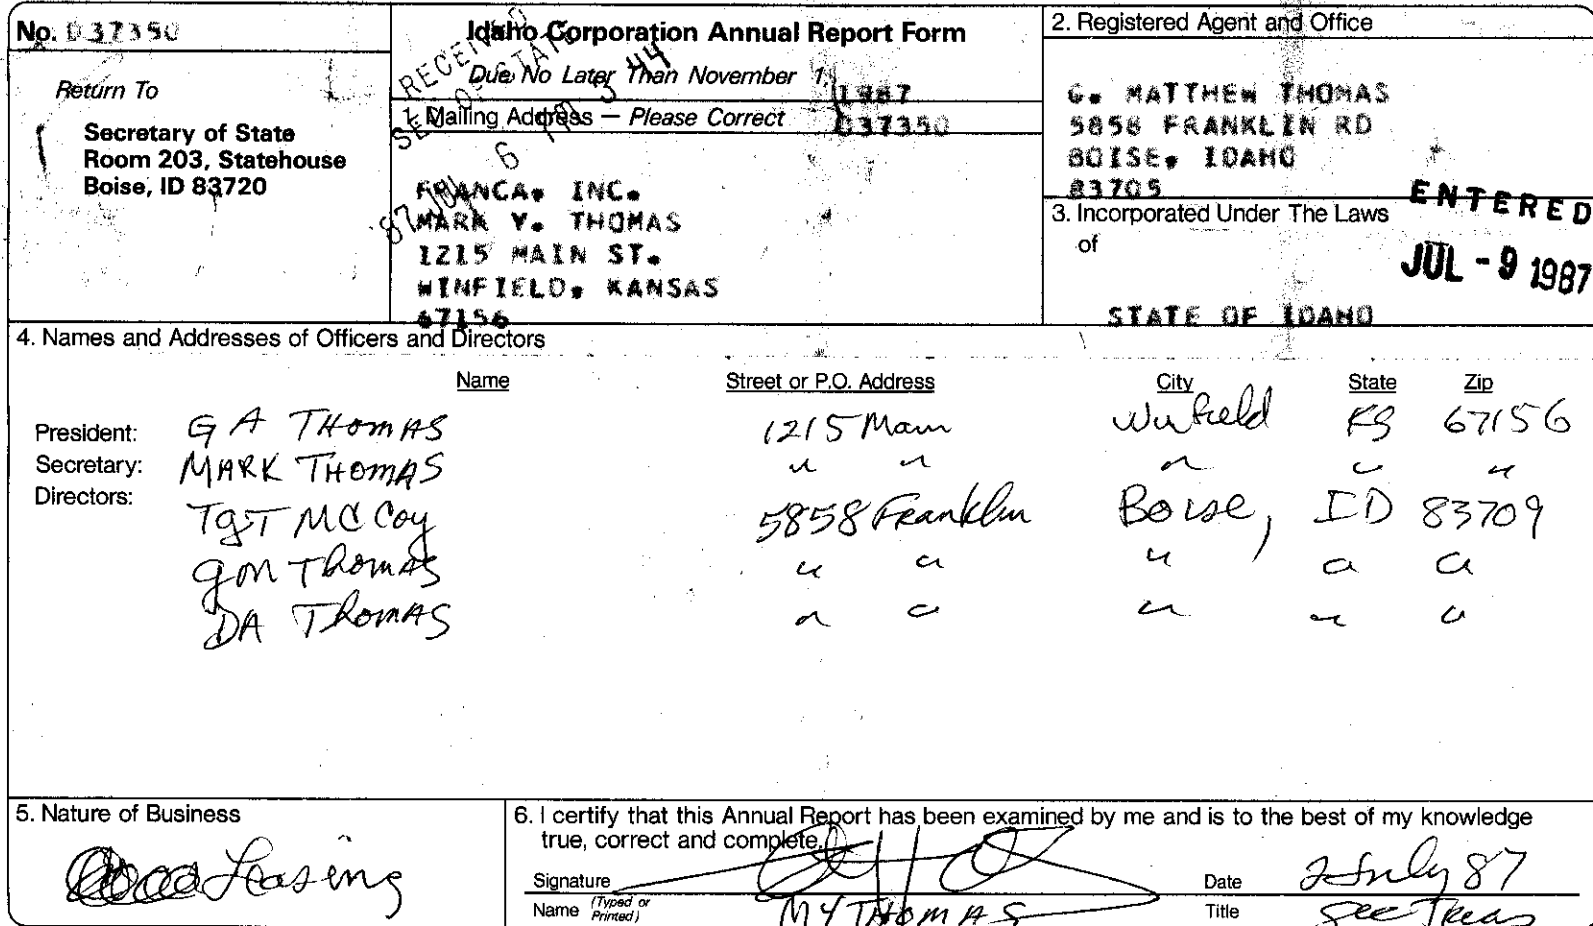 No. D37350
Return To
Secretary of State
Room 203, Statehouse
Boise, ID 83720
Idaho Corporation Annual Report Form
Due No Later Than November 1,
1987
D37350
RECEIVED
SEC. OF STATE
87 JUL 6 AM 3 44
1. Mailing Address — Please Correct
FRANCA, INC.
MARK Y. THOMAS
1215 MAIN ST.
WINFIELD, KANSAS
67156
2. Registered Agent and Office
G. MATTHEW THOMAS
5858 FRANKLIN RD
BOISE, IDAHO
83705
3. Incorporated Under The Laws
of
STATE OF IDAHO
ENTERED
JUL - 9 1987
4. Names and Addresses of Officers and Directors
Name Street or P.O. Address City State Zip
President: G A THOMAS 1215 Main Winfield KS 67156
Secretary: MARK THOMAS " " " " "
Directors:
TGT McCoy 5858 Franklin Boise, ID 83709
GM Thomas " " " " "
DA Thomas " " " " "
5. Nature of Business
Leasing
6. I certify that this Annual Report has been examined by me and is to the best of my knowledge
true, correct and complete.
Signature Date 2 July 87
Name (Typed or Printed) MY THOMAS Title Sec Treas